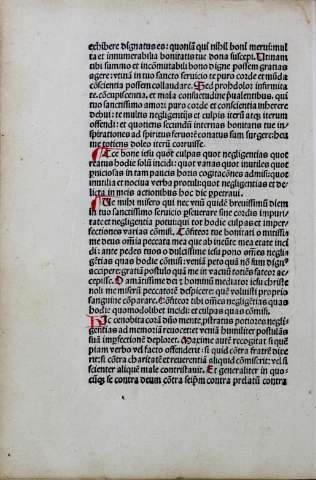 exhibere dignatus es: quoniã qui nihil boni merui: mul
ta et innumerabilia bonitatis tue dona suscepi. Utinam
tibi summo et incõmutabili bono digne possem gratias
agere: vtinã in tuo sancto seruicio te puro corde et mūda
cõscientia possem collaudare. Sed prohdolor infirmita
te. cõcupiscentia. et mala consuetudine p̄ualentibus. qui
tuo sanctissimo amori puro corde et conscientia inherere
debui: te multis negligentijs et culpis iterū atqȝ iterum
offendi: et quotiens secundū internas bonitatis tue in
spirationes ad spiritus feruorē conatus sum surgere: heu
me totiens doleo iterū corruisse.
Ecce bone iesu quot culpas quot negligentias quot
reatus hodie solū incidi: quot vanas quot inutiles quot
priciosas in tam paucis horis cogitatiões admisi: quot
inutilia et nociua verba protuli: quot negligentias et de
licta in meis actionibus hoc die ppetraui.
Ue mihi misero qui nec vnū quidē breuissimū diem
in tuo sanctissimo seruicio psecutare sine cordis impuri
tate et negligentia potui: qui tot hodie culpas et imper-
fectiones varias cõmisi. Cõfiteor tue bonitati o mitissi
me deus oīa peccata mea que ab ineūte mea etate inci
di: ante pedes tuos o dulcissime iesu pono oēs negli
gētias quas hodie cõmisi: veniã peto quã nõ sum dign9
accipere: gratiã postulo quã me in vacuū totiēs fateor ac
cepisse. O amãtissime dei et hominū mediator iesu christe
noli me miserū peccatorē despicere: quē voluisti proprio
sanguine cõparare. Cõfiteor tibi oēs negligētias quas
hodie quomodolibet incidi: et culpas quas cõmisi.
Hic cenobita corã dño mente pstratus potiores negli
gentias ad memoriã reuocet et veniã humiliter postulās
suã imperfectionē deploret. Maxime autē recogitat si quē
piam verbo vel facto offenderit: si quid cõtra fratrē dixe
rit: si cõtra charitatē et reuerentiã aliquid cõmiserit: vel si
scienter aliquē male contristauit. Et generaliter in quo-
cūqȝ se contra deum cõtra seipm̄ contra prelatū contra